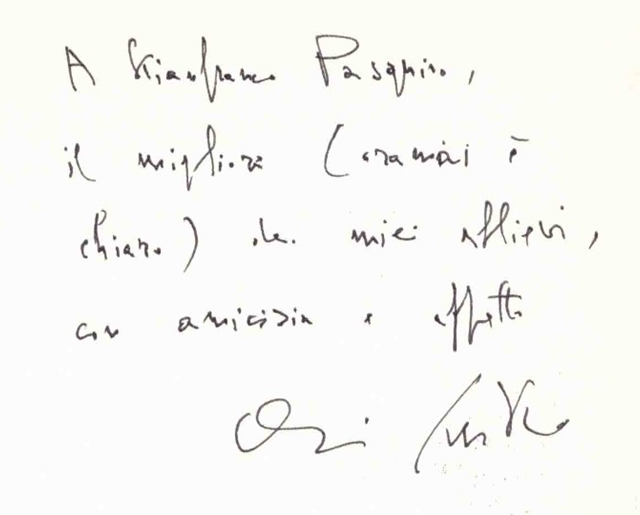 A Gianfranco Pasquino,
il migliore (oramai è
chiaro) dei miei allievi,
con amicizia e affetto